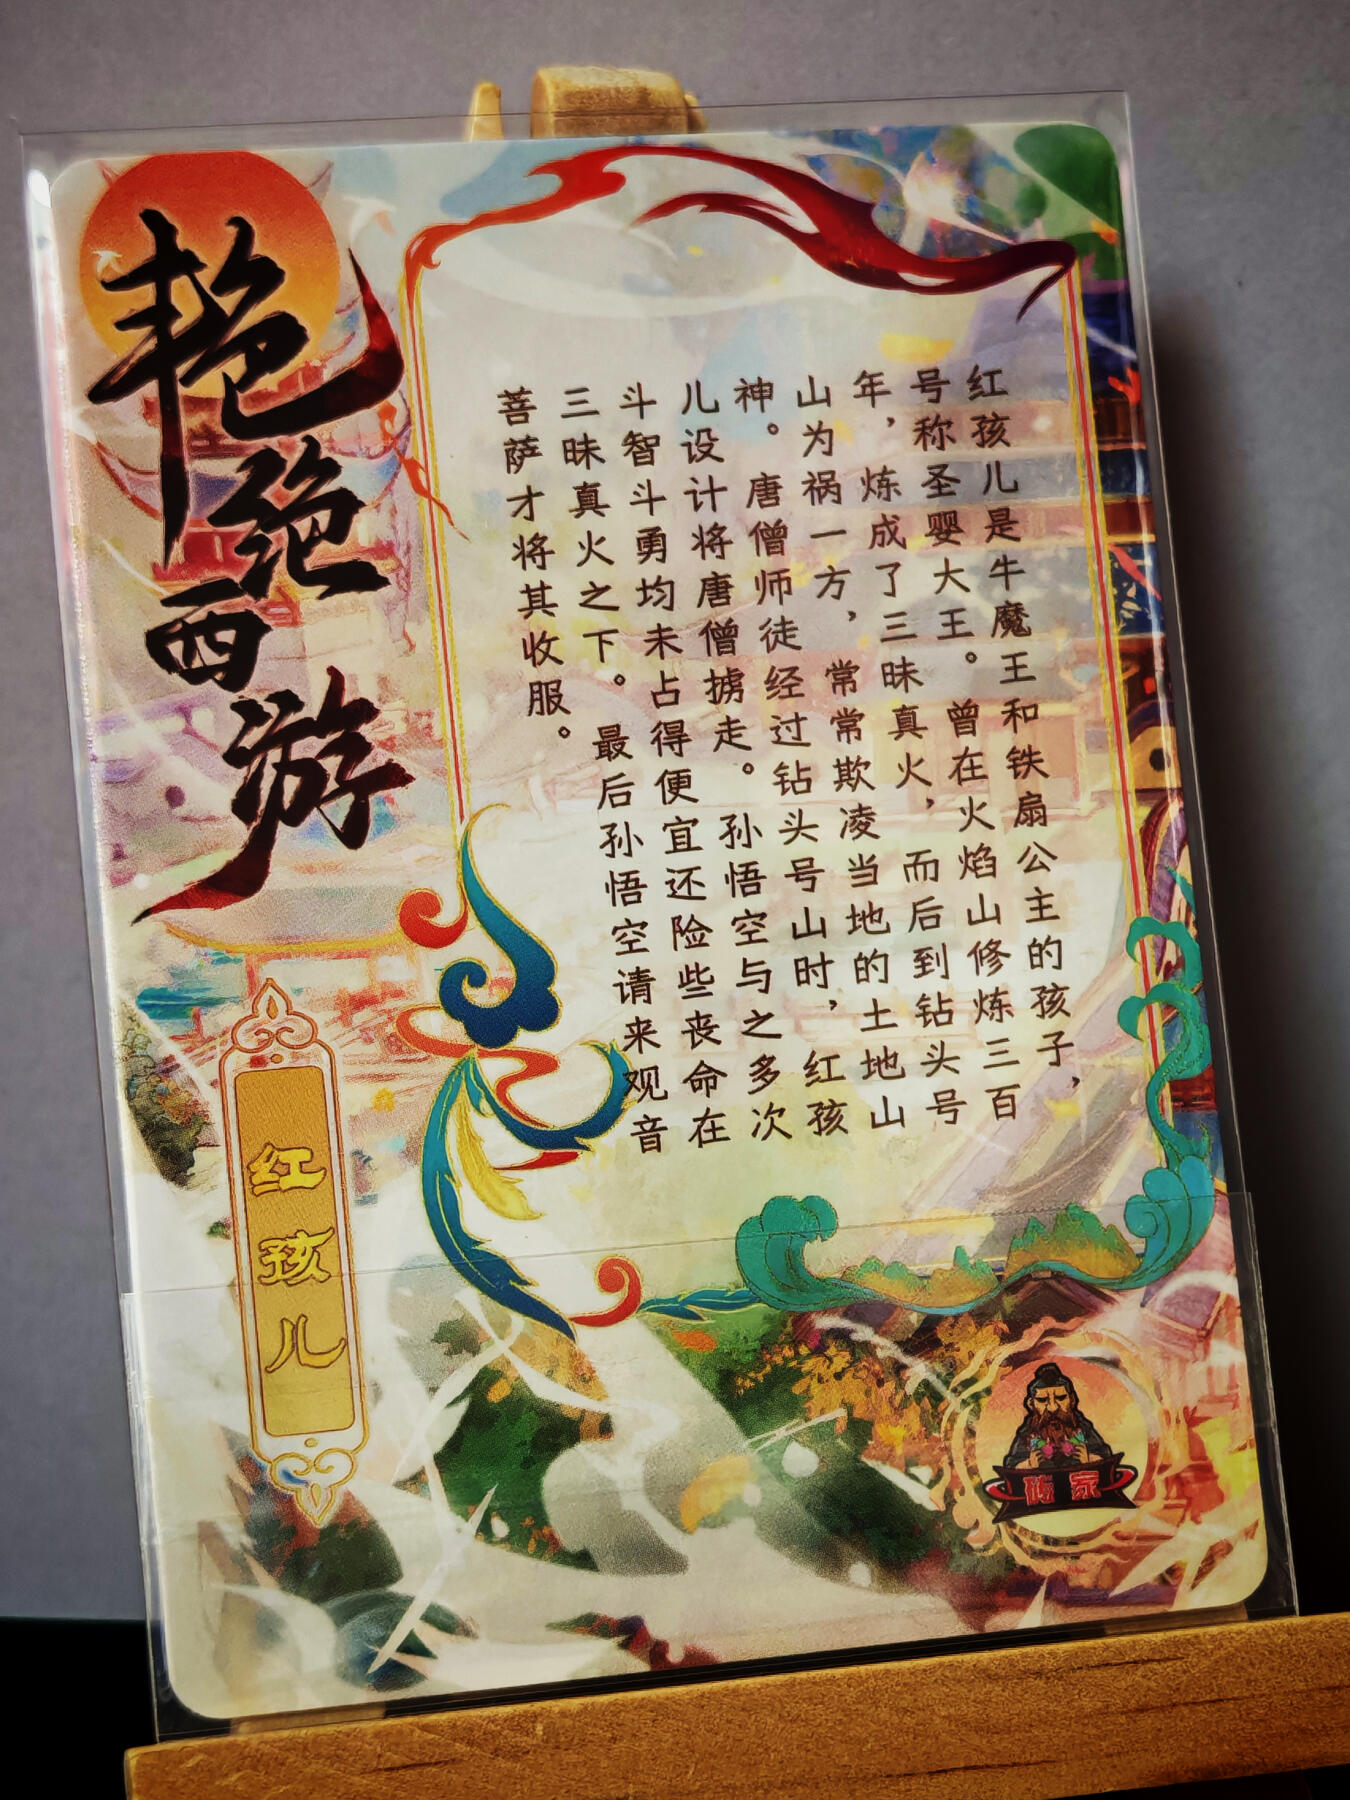 红孩儿是牛魔王和铁扇公主的孩子，
号称圣婴大王。曾在火焰山修炼三百
年，炼成了三昧真火，而后到钻头号
山为祸一方，常常欺凌当地的土地山
神。唐僧师徒经过钻头号山时，红孩
儿设计将唐僧掳走。孙悟空与之多次
斗智斗勇均未占得便宜还险些丧命在
三昧真火之下。最后孙悟空请来观音
菩萨才将其收服。
艳绝西游
红孩儿